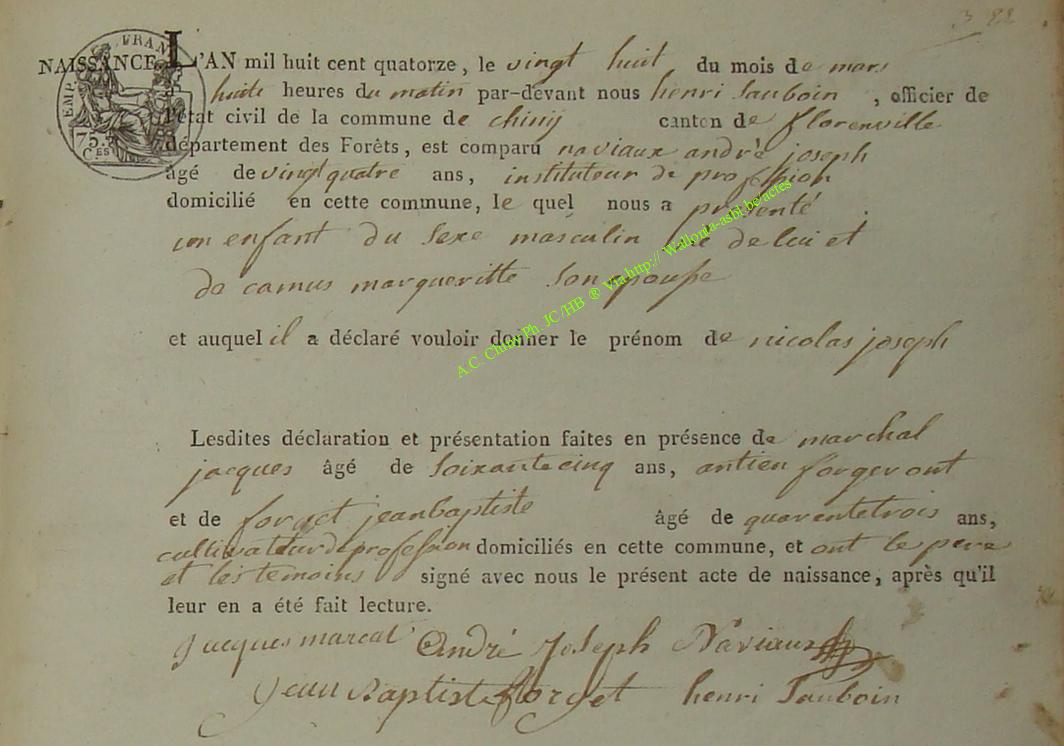 3 22
EMP. FRAN
75. CES
NAISSANCE. L'AN mil huit cent quatorze, le vingt huit du mois de mars
à huite heures du matin par-devant nous henri Sauboin , officier de
l'état civil de la commune de chiny canton de florenville
département des Forêts, est comparu naviaux andré joseph
âgé de vingt quatre ans, instituteur de profession
domicilié en cette commune, le quel nous a présenté
un enfant du sexe masculin né de lui et
de camus margueritte son epouse
et auquel il a déclaré vouloir donner le prénom de nicolas joseph
A.C. Chiny Ph. JC/HB ® Via http:// Wallonia-asbl.be/actes
Lesdites déclaration et présentation faites en présence de marchal
jacques âgé de soixante cinq ans, antien forgeront
et de forget jean baptiste âgé de quarente trois ans,
cultivateur de profession domiciliés en cette commune, et ont le pere
et les temoins signé avec nous le présent acte de naissance, après qu'il
leur en a été fait lecture.
jacques marcal André Joseph Naviaux
jean Baptiste forget henri Sauboin